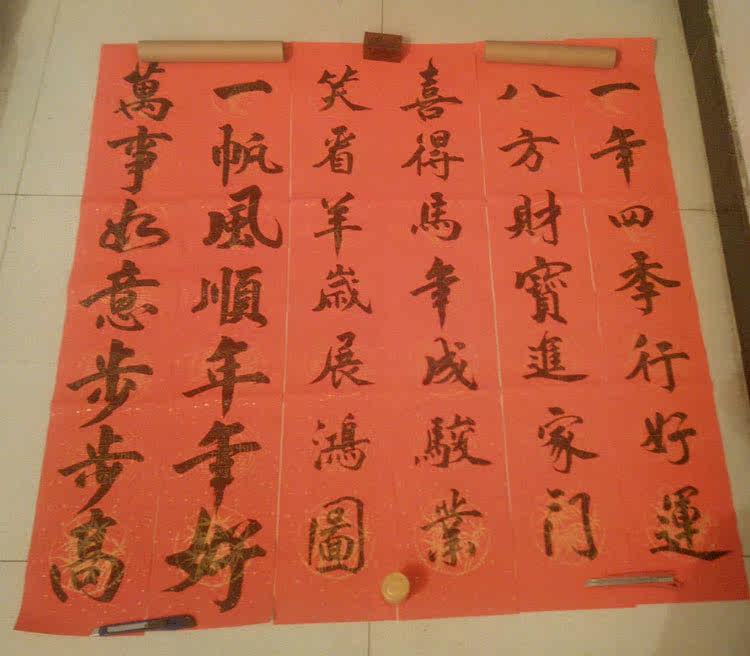 一年四季行好運
八方財寳進家门
喜得馬年成駿業
笑看羊歲展鴻圖
一帆風順年年好
萬事如意步步高